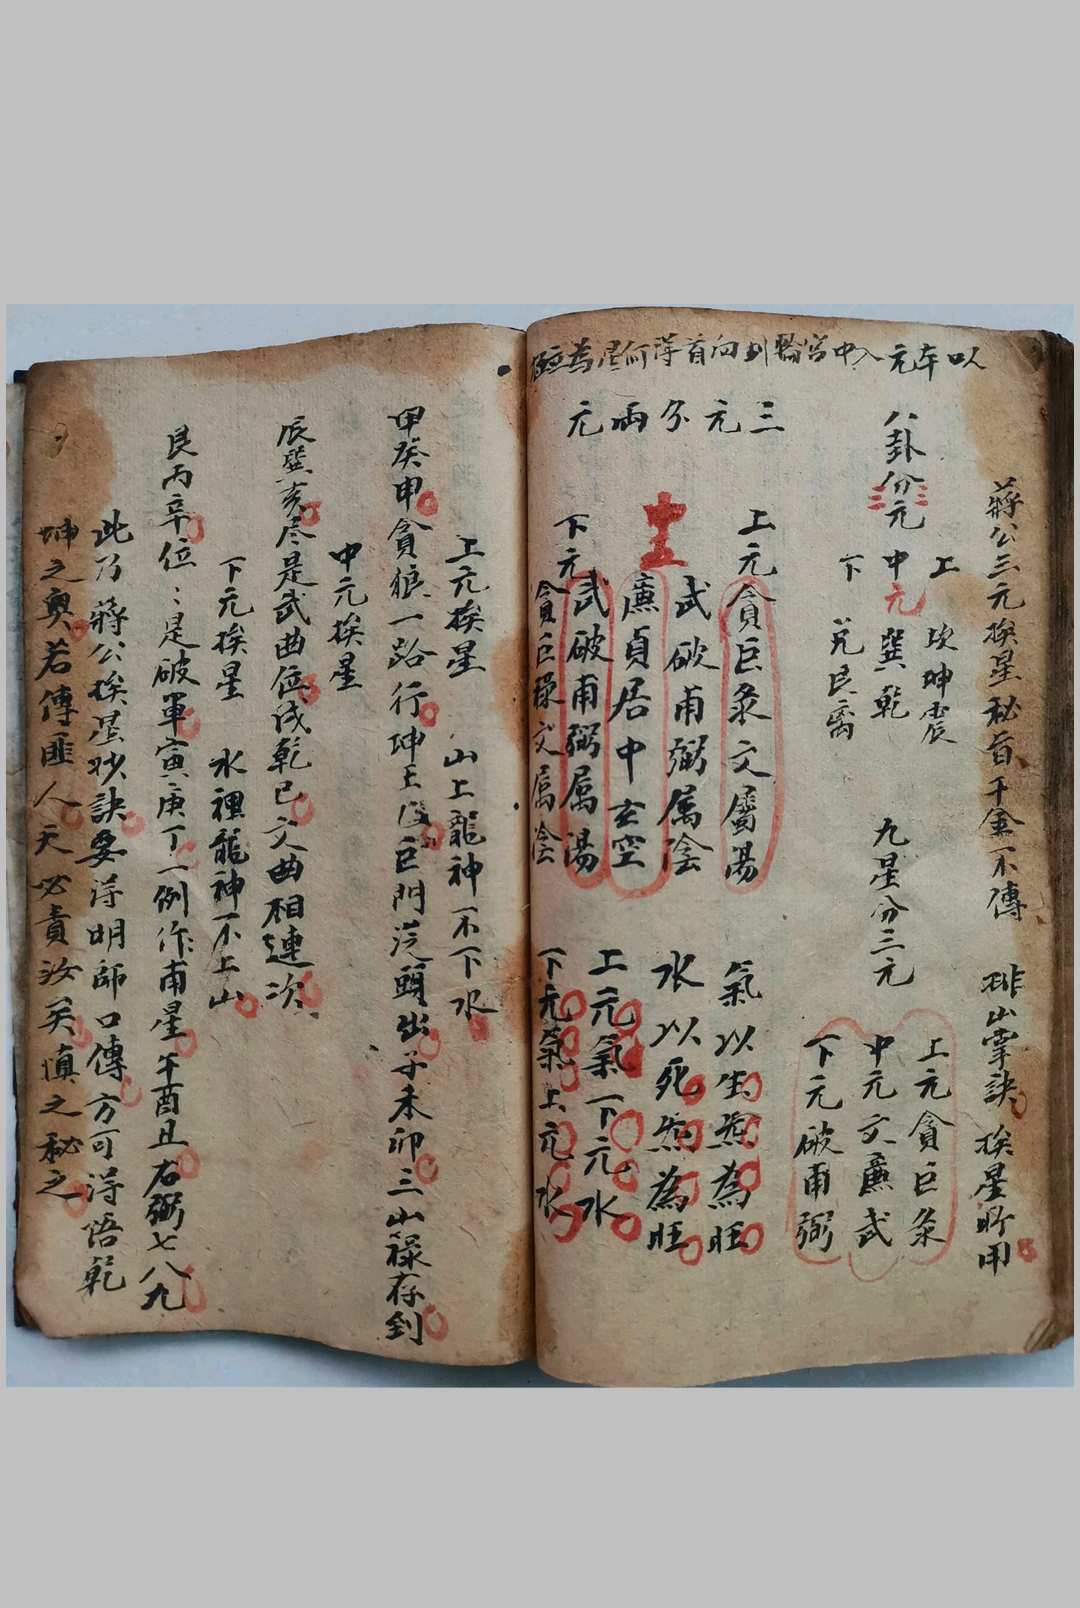 以本元入中宮輪到向首得何星為
蔣公三元挨星秘旨千金不傳 排山掌訣 挨星所用
八卦分元
上 坎坤震
中元巽乾
下 兌艮离
九星分三元
上元貪巨祿
中元文廉武
下元破甫弼
三元分兩元
上元貪巨彔文屬陽
武破甫弼屬陰
廉貞居中玄空
下元武破甫弼屬陽
貪巨祿文屬陰
氣以生炁為旺
水以死炁為旺
上元氣下元水
下元氣上元水
上元挨星 山上龍神不下水
甲癸申貪狼一路行坤壬乙巨門從頭出子未卯三山祿存到
中元挨星
辰巽亥尽是武曲位戌乾巳文曲相連次
下元挨星 水裡龍神不上山
艮丙辛位:是破軍寅庚丁一例作甫星午酉丑右弼七八九
此乃蔣公挨星妙訣要得明師口傳方可得悟乾
坤之奧若傳匪人天必責汝矣慎之秘之